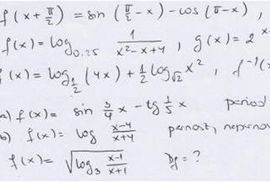 f(x+π/2) = sin(π/2-x) - cos(π-x),
f(x) = log_{0.25} 1/(x²-x+4), g(x) = 2^x
f(x) = log_{1/2}(4x) + 1/2 log_{√2} x², f⁻¹(x
a) f(x) = sin 3/4 x - tg 1/5 x period
b) f(x) = log (x-4)/(x+4) parnost, neparno
f(x) = √(log₃ (x-1)/(x+1)) Df = ?